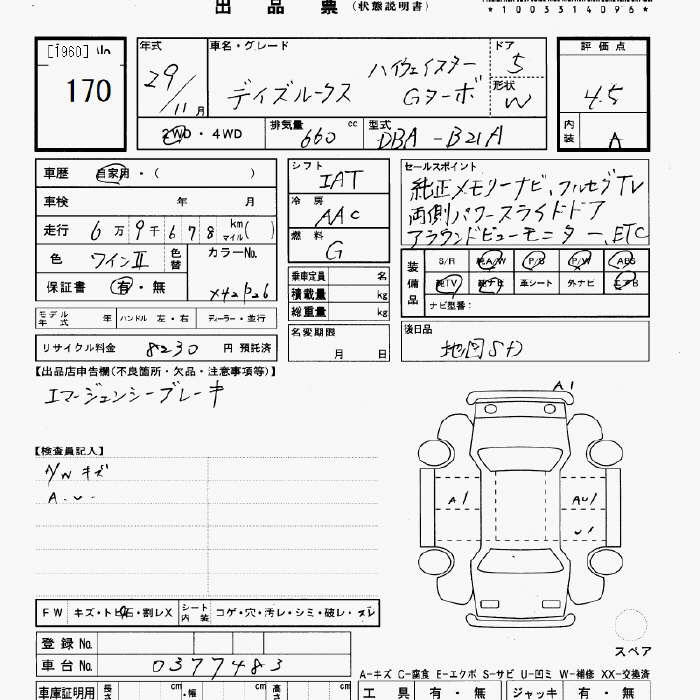 出 品 票 (状態説明書)
*1003314096*
[1960] lln
170
年式
29/11月
車名・グレード
デイズルークス ハイウェイスター Gターボ
ドア
5
形状
W
評価点
4.5
内装
A
2WD・4WD
排気量 660 cc
型式 DBA-B21A
車歴 自家用・( )
車検 年 月
走行 6万9千678 km マイル( )
色 ワインⅡ 色替
カラーNo.
保証書 有・無
シフト
IAT
冷房
AAC
燃料
G
乗車定員 名
積載量 kg
総重量 kg
名変期限
月 日
セールスポイント
純正メモリーナビ、フルセグTV
両側パワースライドドア
アラウンドビューモニター、ETC
装備品
S/R 純A/W P/S P/W ABS
純TV 純ナビ 革シート 外ナビ エアB
ナビ型番:
後日品
地図SD
モデル年式 年 ハンドル 左・右 ディーラー・並行
リサイクル料金 8230 円 預託済
【出品店申告欄(不良箇所・欠品・注意事項等)】
エマージェンシーブレーキ
【検査員記入】
A/W キズ
A.U.
A1
A1
AU1
U1
スペア
FW キズ・トビ石・割レX シート内装 コゲ・穴・汚レ・シミ・破レ・スレ
登録 No.
車台 No. 0377483
A-キズ C-腐食 E-エクボ S-サビ U-凹ミ W-補修 XX-交換済
車庫証明用 長さ cm ・幅 cm 高さ cm
工具 有・無 ジャッキ 有・無